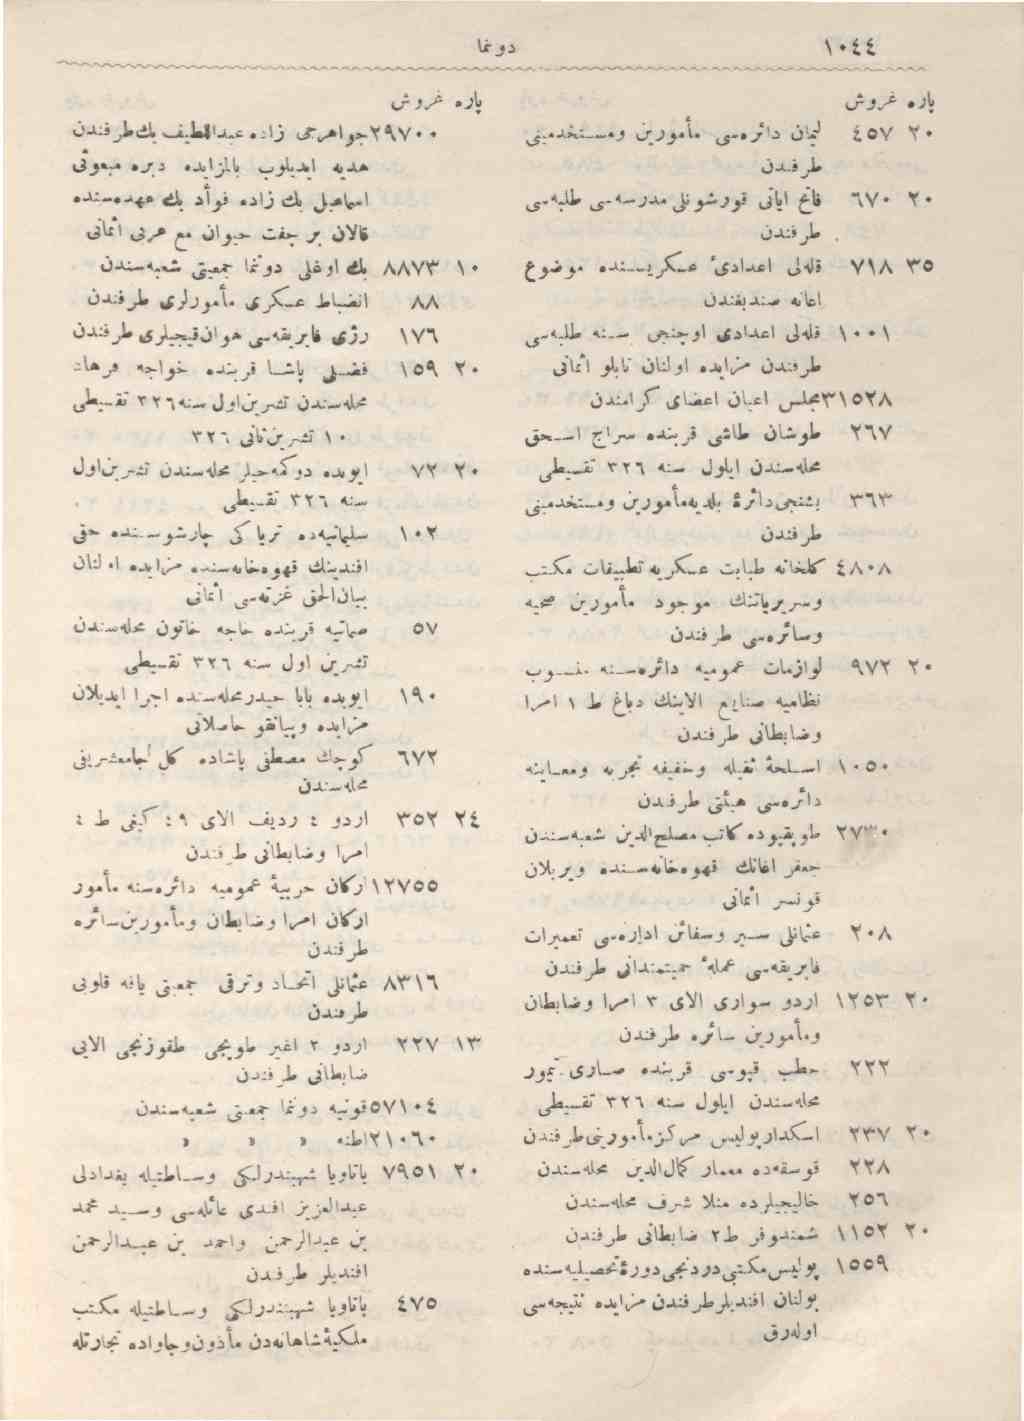 ١٠٤٤ دونما
پاره غروش
٢٠ ٤٥٧ ليمان دائره‌سى مأمورين ومستخدمينى
طرفندن
٢٠ ٦٧٠ فاتح اياتى قورشونلى مدرسه‌سى طلبه‌سى
طرفندن
٣٥ ٧١٨ قله‌لى اعدادئ عسكريسنده موضوع
اعانه صنديغندن
١٠٠١ قله‌لى اعدادى اوچنجى سنه طلبه‌سى
طرفندن مزايده اولنان تابلو اثمانى
٣١٥٢٨ مجلس اعيان اعضاى كرامندن
٢٦٧ طوشان طاشى قربنده سراج اسحق
محله‌سندن ايلول سنه ٣٢٦ تقسيطى
٣٦٣ بشنجى دائرۀ بلديه مأمورين ومستخدمينى
طرفندن
٤٨٠٨ كلخانه طبابت عسكريه تطبيقات مكتب
وسريرياتنك موجود مأمورين صحيه
وسائره‌سى طرفندن
٢٠ ٩٧٢ لوازمات عموميه دائره‌سنه منسوب
نظاميه صنايع الاينك دباغ ط ١ امرا
وضابطانى طرفندن
١٠٥٠ اسلحۀ ثقيله وخفيفه تجربه ومعاينه
دائره‌سى هيئتى طرفندن
٢٧٣٠ طوپقپوده كاتب مصلح‌الدين شعبه‌سندن
جعفر اغانك قهوه‌خانه‌سنده ويريلان
قونسر اثمانى
٢٠٨ عثمانلى سير وسفائن اداره‌سى تعميرات
فابريقه‌سى عملۀ حميتمندانى طرفندن
٢٠ ١٢٥٣ اردو سوارى الاى ٣ امرا وضابطان
ومأمورين سائره طرفندن
٢٢٢ حطب قپوسى قربنده صارى تيمور
محله‌سندن ايلول سنه ٣٢٦ تقسيطى
٢٠ ٢٣٧ اسكدار پوليس مركز مأمورينى طرفندن
٢٢٨ قوسقه‌ده معمار كمال‌الدين محله‌سندن
٢٥٦ خاليجيلرده منلا شرف محله‌سندن
٢٠ ١١٥٢ شمندوفر ط ٢ ضابطانى طرفندن
١٥٥٩ پوليس مكتبى دردنجى دورۀ تحصيليه‌سنده
بولنان افنديلر طرفندن مزايده نتيجه‌سى
اوله‌رق
پاره غروش
٢٩٧٠٠ جواهرجى زاده عبداللطيف بك طرفندن
هديه ايديلوب بالمزايده دبره مبعوثى
اسماعيل بك زاده فوأد بك عهده‌سنده
قالان بر جفت حيوان مع عربى اثمانى
١٠ ٨٨٧٣ بك اوغلى دونما جمعيتى شعبه‌سندن
٨٨ انضباط عسكرى مأمورلرى طرفندن
١٧٦ رژى فابريقه‌سى هوان قييجيلرى طرفندن
٢٠ ١٥٩ فضلى پاشا قربنده خواجه فرهاد
محله‌سندن تشرين‌اول سنه ٣٢٦ تقسيطى
١٠ تشرين‌ثانى ٣٢٦
٢٠ ٧٢ ايوبده دوكمه‌جيلر محله‌سندن تشرين‌اول
سنه ٣٢٦ تقسيطى
١٠٢ سليمانيه‌ده ترياكى چارشوسنده حقى
افندينك قهوه‌خانه‌سنده مزايده اولنان
بيان‌الحق غزته‌سى اثمانى
٥٧ صماتيه قربنده حاجه خاتون محله‌سندن
تشرين اول سنه ٣٢٦ تقسيطى
١٩٠ ايوبده بابا حيدر محله‌سنده اجرا ايديلان
مزايده وپيانقو حاصلاتى
٦٧٢ كوچك مصطفى پاشاده كل جامعشريفى
محله‌سندن
٢٤ ٣٥٢ اردو ٤ رديف الاى ٤٩ كيغى ط ٤
امرا وضابطانى طرفندن
١٢٧٥٥ اركان حربيۀ عموميه دائره‌سنه مأمور
اركان امرا وضابطان ومأمورين سائره
طرفندن
٨٣١٦ عثمانلى اتحاد وترقى جمعيتى يافه قلوبى
طرفندن
١٣ ٢٢٧ اردو ٢ اغير طوپجى طقوزنجى الايى
ضابطانى طرفندن
٥٧١٠٤ قونيه دونما جمعيتى شعبه‌سندن
٢١٠٦٠ اطنه » » »
٢٠ ٧٩٥١ باتاويا شهبندرلكى وساطتيله بغدادلى
عبدالعزيز افندى عائله‌سى وسيد محمد
بن عبدالرحمن واحمد بن عبدالرحمن
افنديلر طرفندن
٤٧٥ باتاويا شهبندرلكى وساطتيله مكتب
ملكيۀ شاهانه‌دن مأذون وجاواده تجارتله